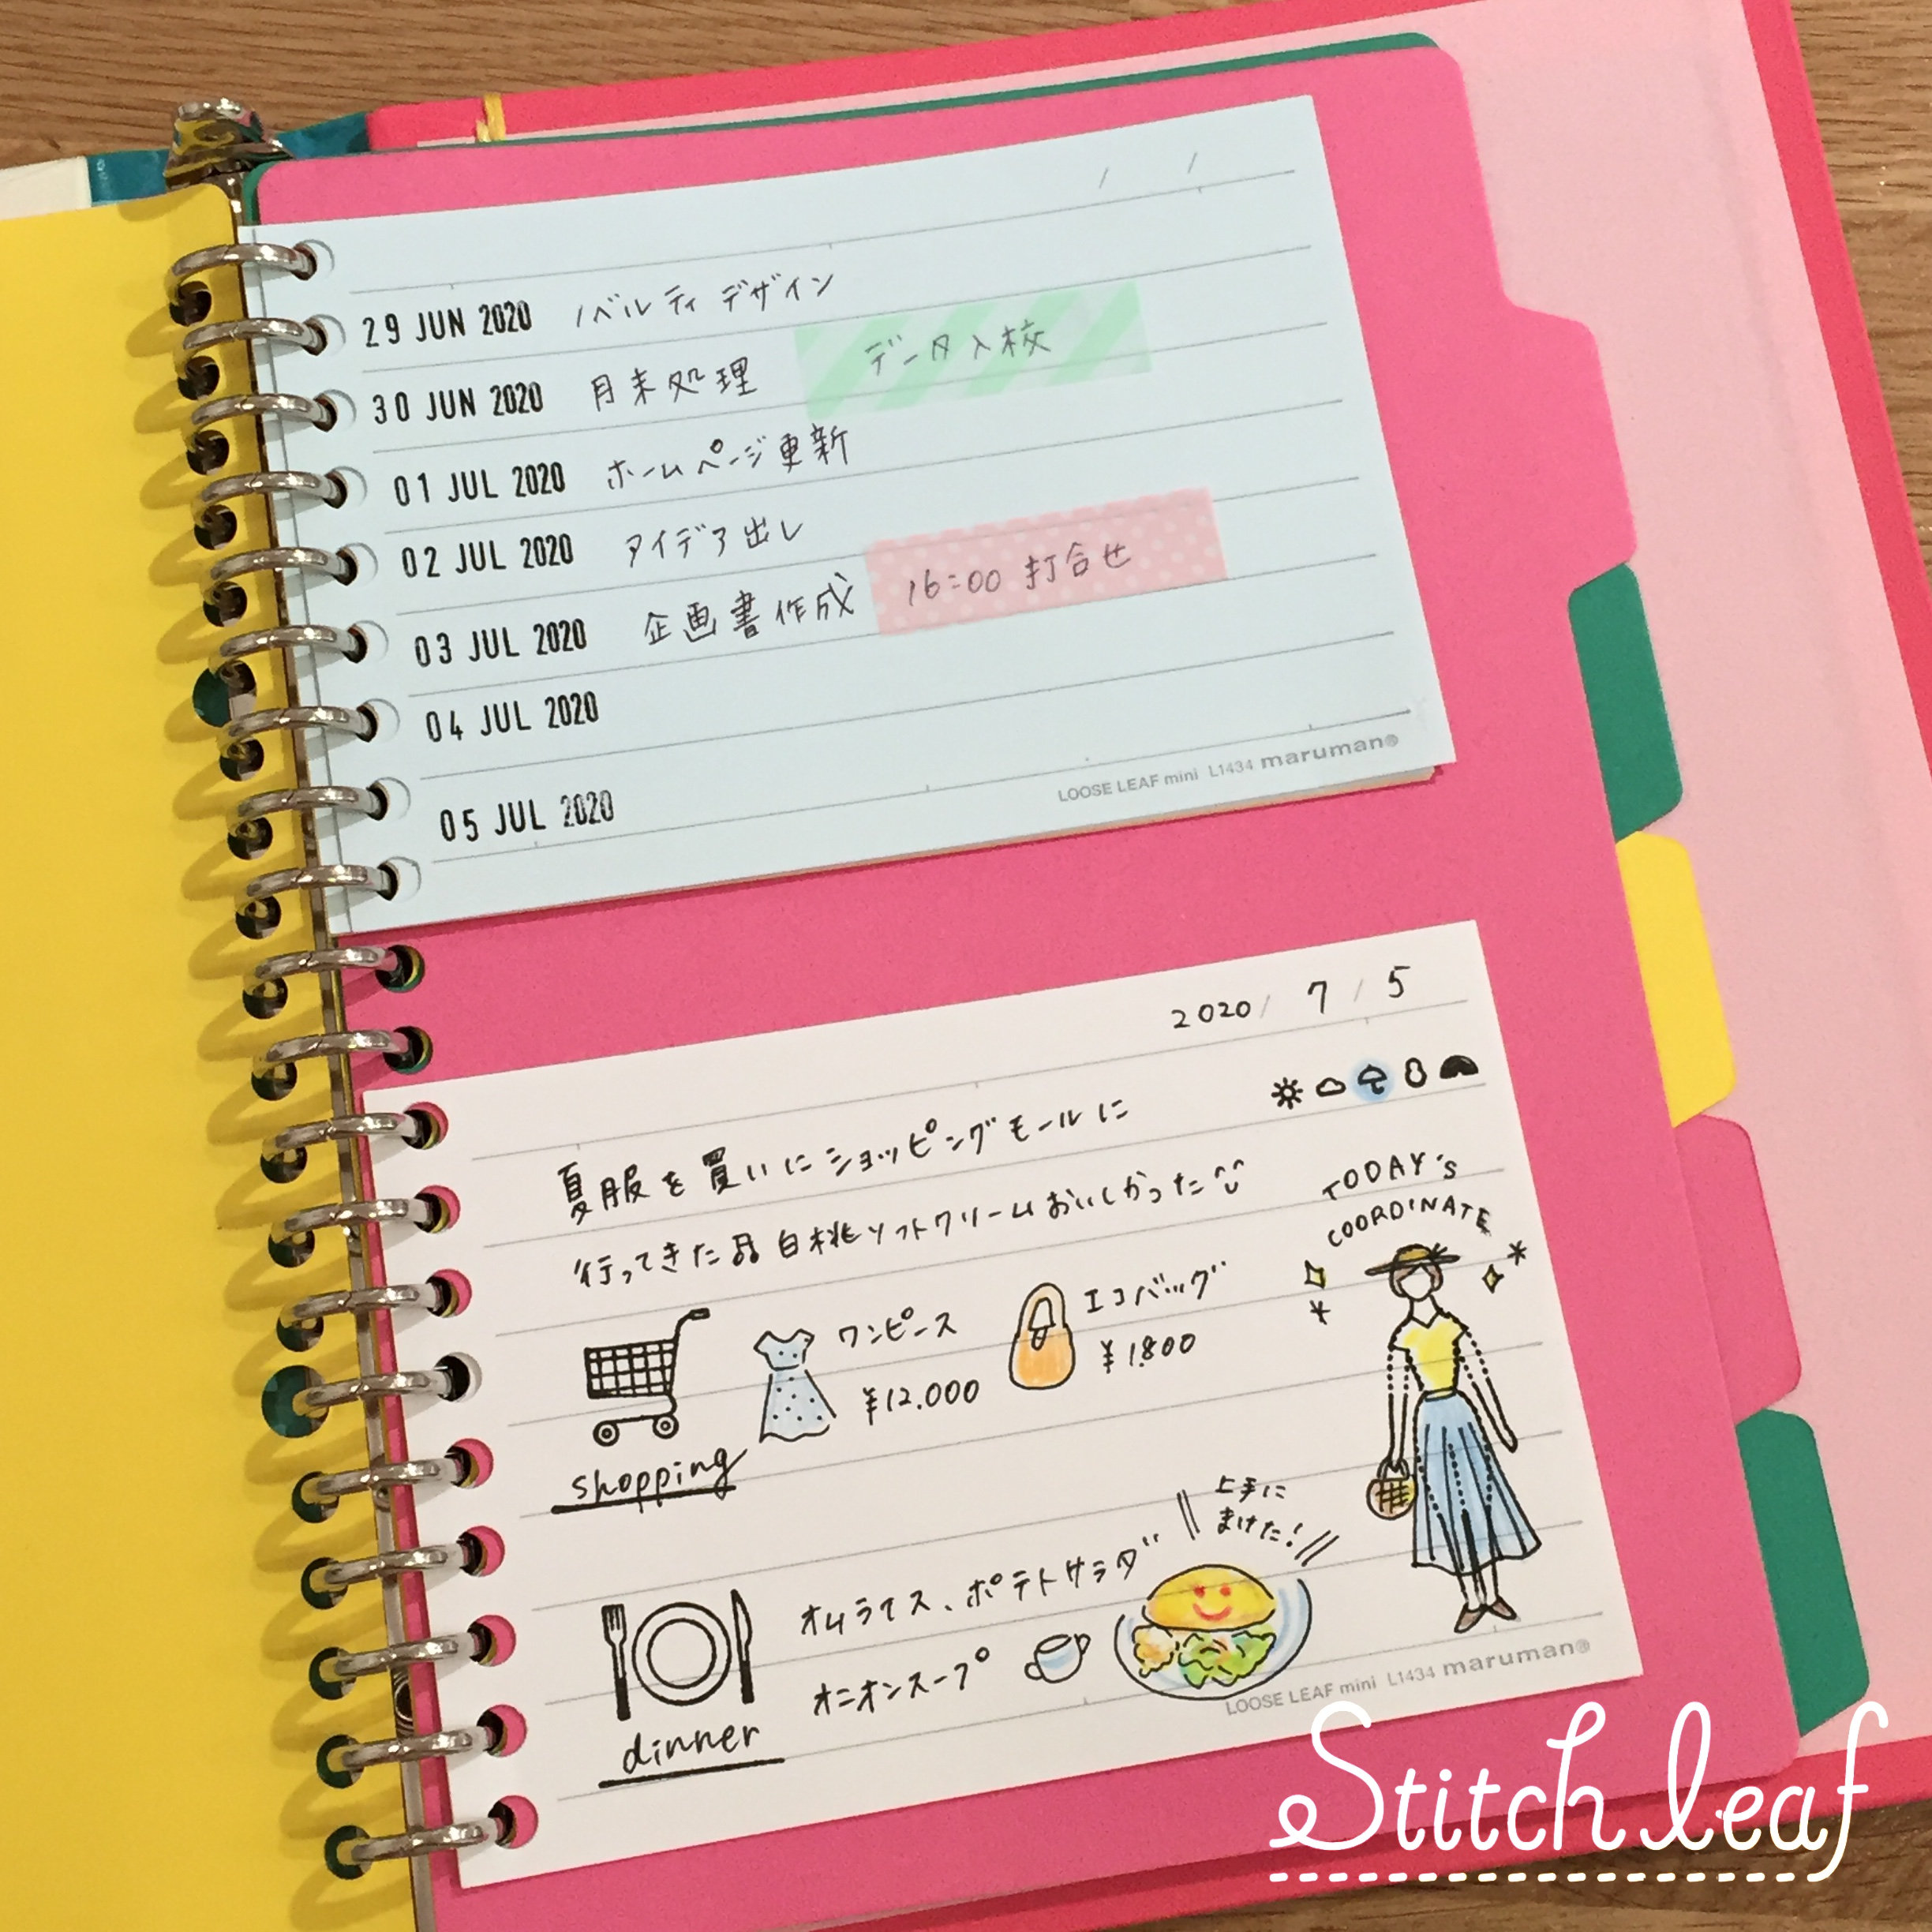 / /
29 JUN 2020 ノベルティデザイン
30 JUN 2020 月末処理 データ入校
01 JUL 2020 ホームページ更新
02 JUL 2020 アイデア出し
03 JUL 2020 企画書作成 16:00 打合せ
04 JUL 2020
05 JUL 2020
LOOSE LEAF mini L1434 maruman®
2020/ 7 / 5
夏服を買いにショッピングモールに
行ってきた 白桃ソフトクリームおいしかった
TODAY'S
COORDINATE
ワンピース
¥12.000
エコバッグ
¥1.800
shopping
上手に
まけた!
オムライス、ポテトサラダ
オニオンスープ
dinner
LOOSE LEAF mini L1434 maruman®
Stitch leaf